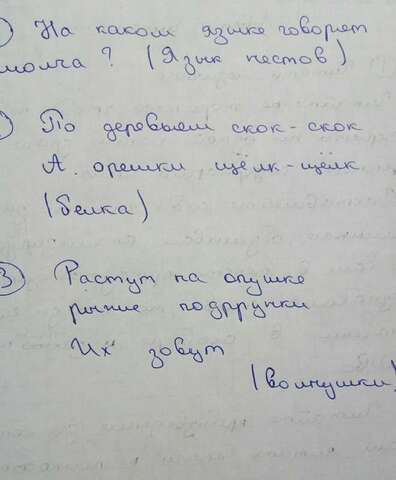 На каком языке говорят
молча? (Язык жестов)
По деревьям скок-скок
А орешки щёлк-щёлк
(белка)
3 Растут на опушке
рыжие подружки
Их зовут
(волнушки)